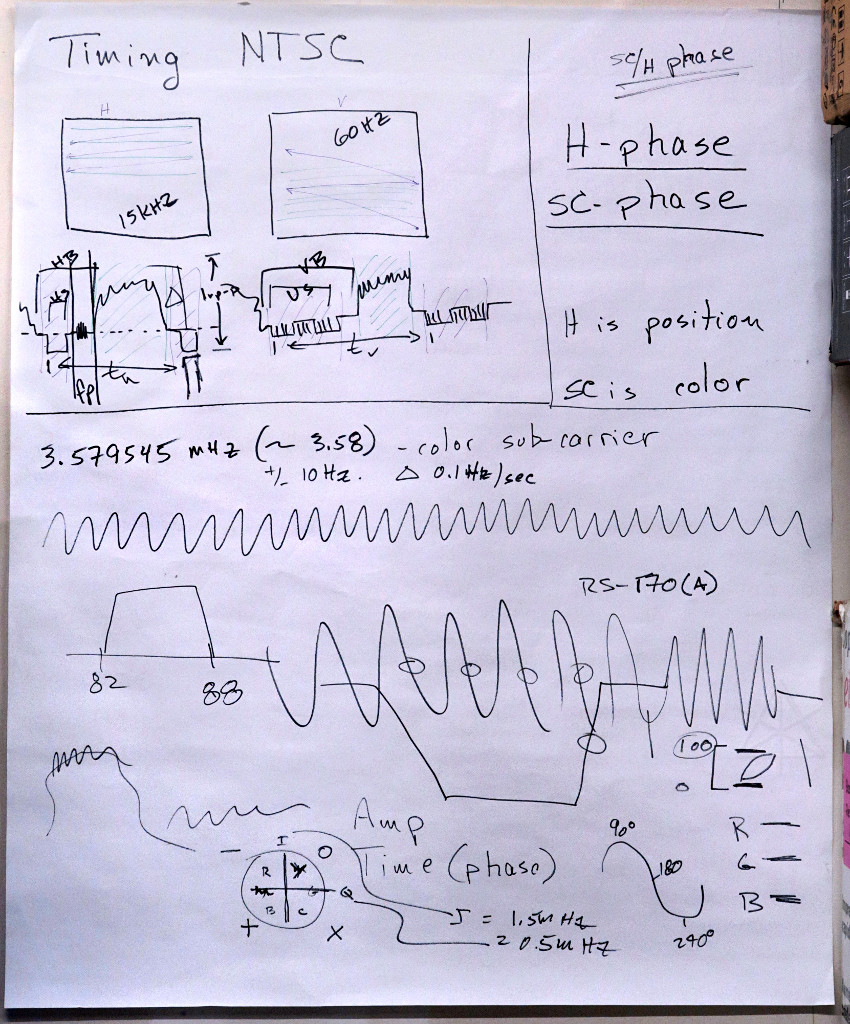 Timing NTSC
SC/H phase
H
V
60HZ
15KHZ
H-phase
SC-phase
HB
HS
VB
VS
1vp-p
fp
th
tv
H is position
SC is color
3.579545 mHz (~ 3.58) - color subcarrier
+/- 10 Hz. △ 0.1Hz/sec
RS-170(A)
82
88
100
0
Amp
Time (phase)
I
Q
R
Y
G
B
C
-
O
+
X
= 1.5mHz
= 0.5mHz
90°
180
240°
R —
G —
B —